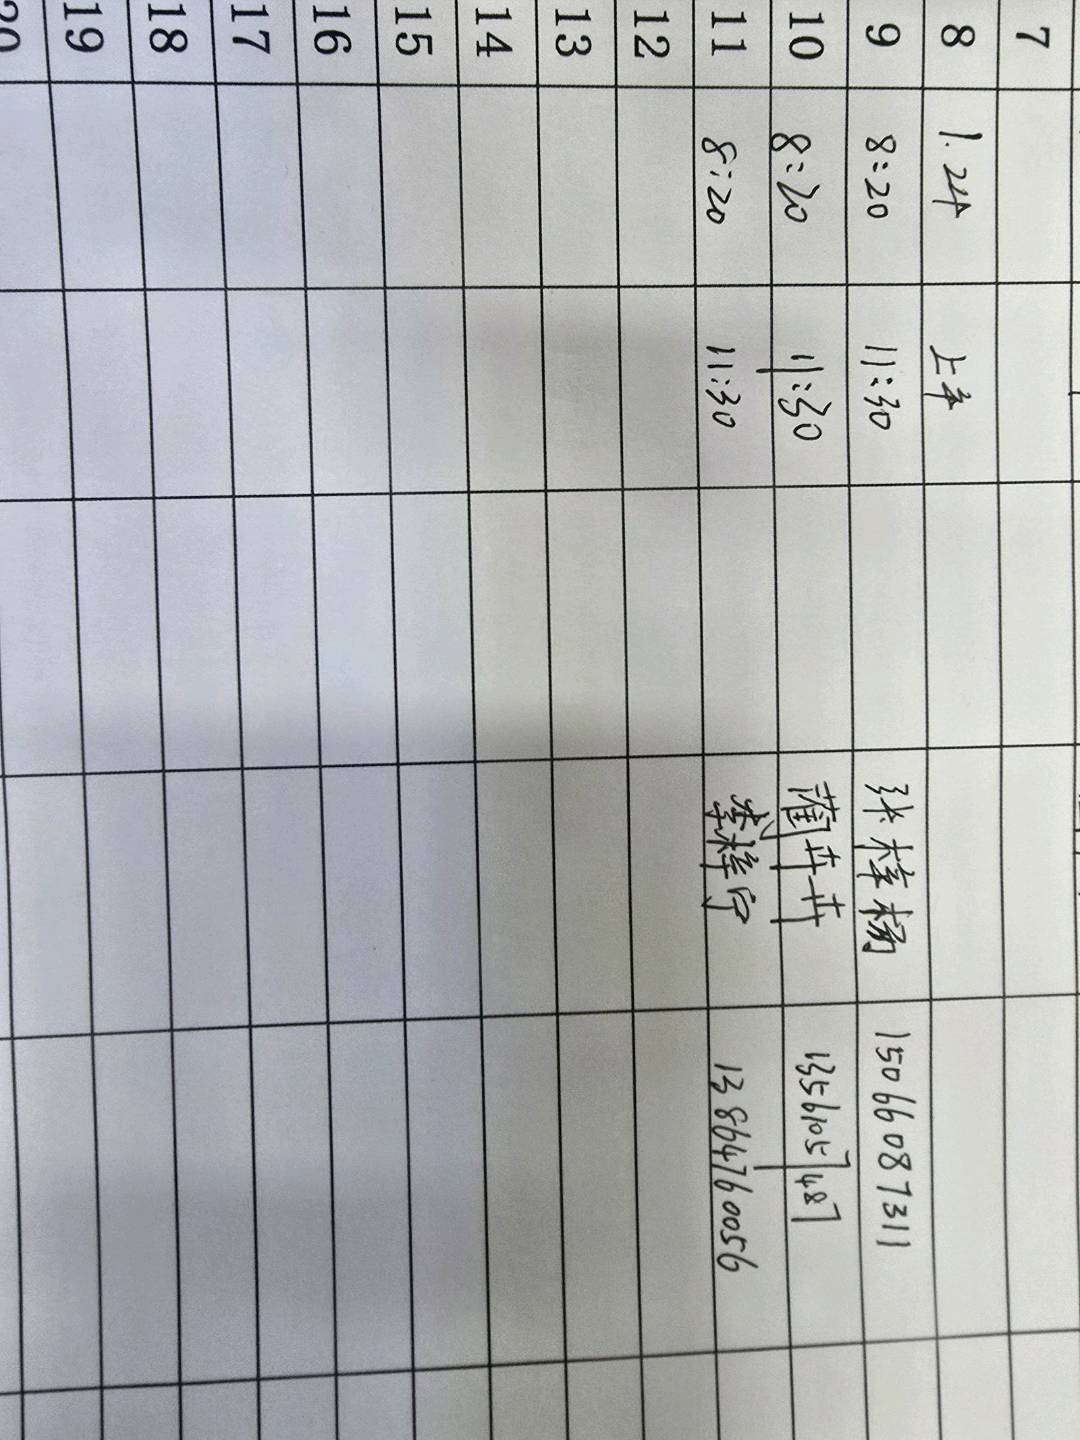 7
8 1.24 上午
9 8:20 11:30 张樟杨 15066087311
10 8:20 11:30 蔺卉卉 13561057487
11 8:20 11:30 李梓宁 13864760056
12
13
14
15
16
17
18
19
20